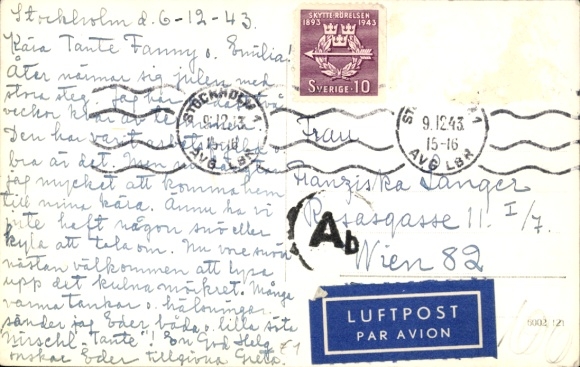 Stockholm d. 6-12-43.
Kära Tante Fanny o. Emilia!
Åter närmar sig julen med
stora steg. Jag har
veckor kvar av te
Den har varit
bra är det. Men
jag mycket att komma hem
till mina kära. Ännu ha vi
inte haft någon snö eller
kyla att tala om. Nu vore snön
nästan välkommen att lysa
upp det kulna mörkret. Många
varma tankar o. hälsningar
sänder jag Eder båda o. lilla söta
"Tante"! En God Helg
önskar Eder tillgivna Greta.
SKYTTE-RÖRELSEN
1893 1943
SVERIGE 10
STOCKHOLM 1
9.12.43
15-16
AVG LBR
STOCKHOLM 1
9.12.43
15-16
AVG LBR
Frau
Franziska Langer
Rosasgasse 11. I/7.
Wien 82
Ab
LUFTPOST
PAR AVION
6003 121